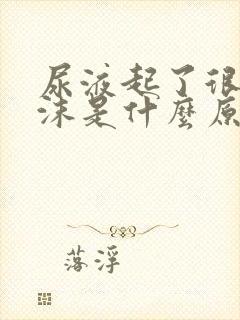 尿液起了很
沫是什麼原
落浮